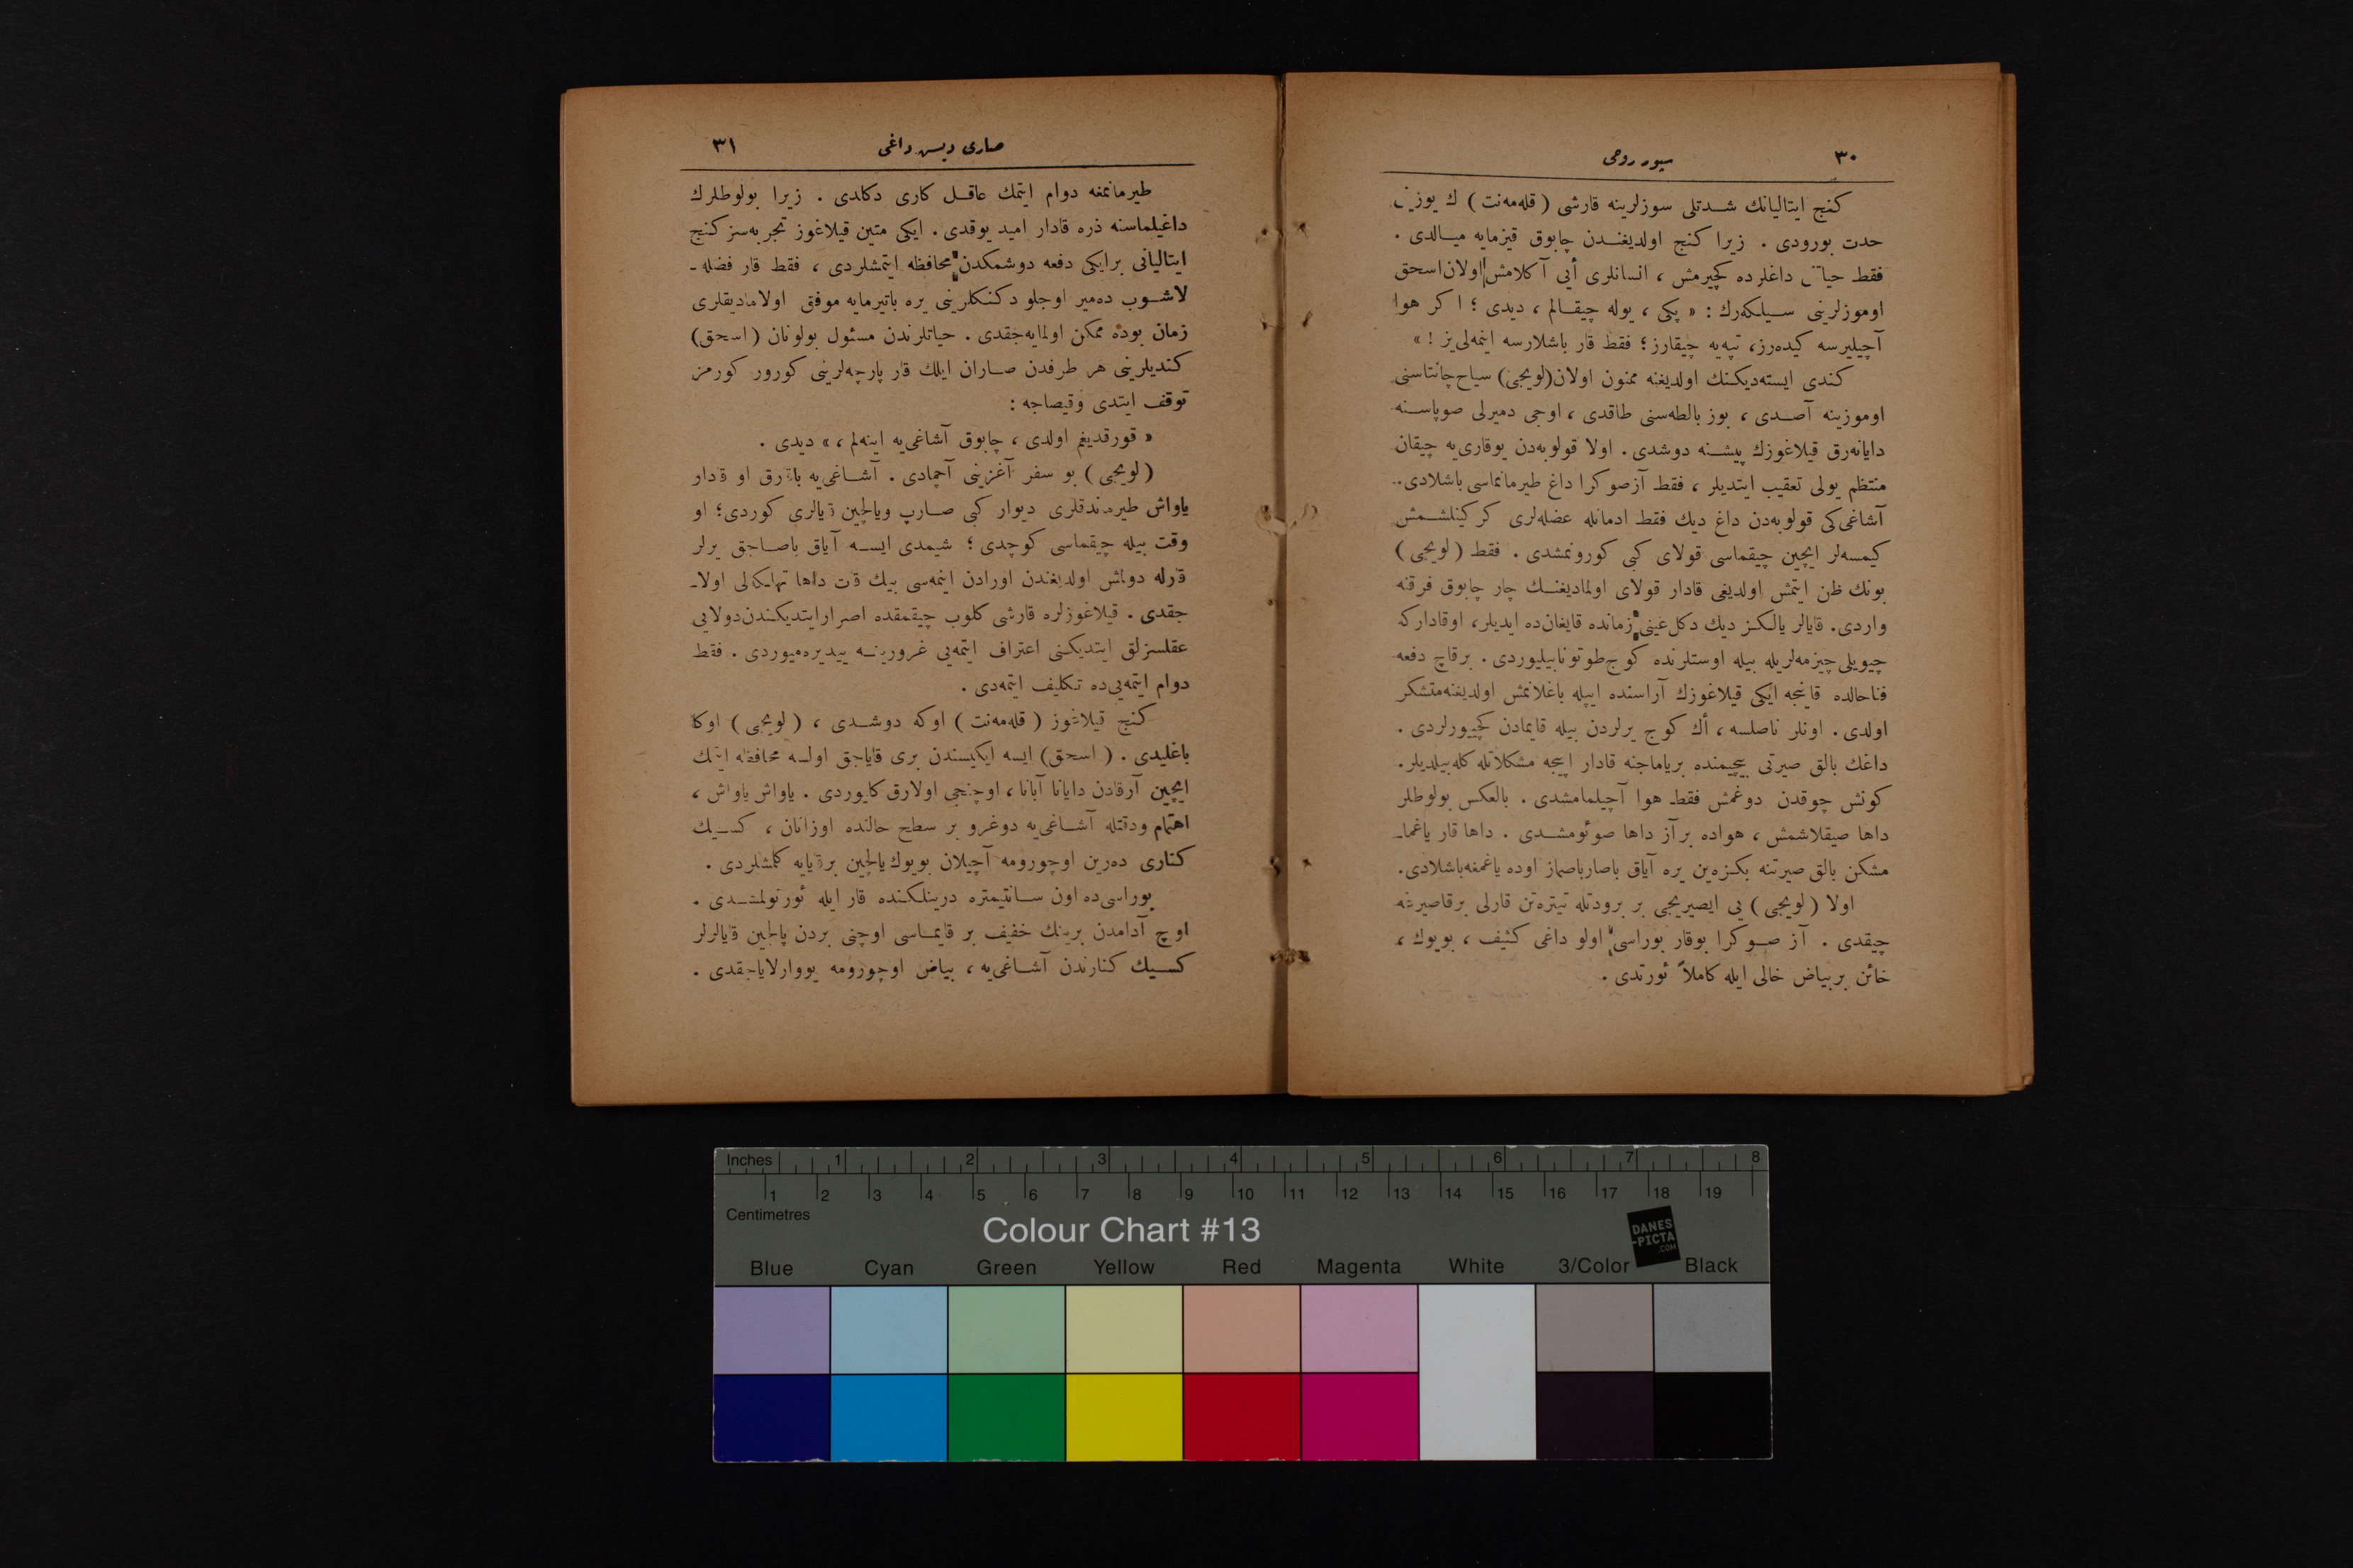 ٣٠
سپور روحی
کنج ایتالیانك شـدتلی سوزلرینه قارشی ( قله‌مه‌نت ) ك یوزینی
حدت بورودی . زیرا کنج اولدیغنـدن چابوق قیزمایه میـالدی .
فقط حیاتی داغلرده کچیرمش ، انسانلری أیی آکلامش اولان اسحق
اوموزلرینی سـیلکه‌رك : « پکی ، یوله چیقـالم ، دیدی ؛ اکر هوا
آچیلیرسه کیده‌رز، تپه‌یه چیقارز؛ فقط قار باشلارسه اینمه‌لی‌یز ! »
کندی ایسته‌دیکنك اولدیغنه ممنون اولان (لویجی) سیاح چانتاسنی
اوموزینه آصـدی ، بوز بالطه‌سنی طاقدی ، اوجی دمیرلی صوپاسـنه
دایانه‌رق قیلاغوزك پیشـنه دوشدی . اولا قولوبه‌دن یوقاری‌یه چیقان
منتظم یولی تعقیب ایتدیلر ، فقط آز صوکرا داغ طیرمانماسی باشلادی.
آشاغی‌کی قولوبه‌دن داغ دیك فقط ادمانله عضله‌لری کرکینلشـمش
کیمسه‌لر ایچین چیقماسی قولای کبی کورونمشدی . فقط ( لویجی )
بونك ظن ایتمش اولدیغی قادار قولای اولمادیغنـك چار چابوق فرقنه
واردی. قایالر یالکـز دیك دکل عینی زمانده قایغان‌ده ایدیلر، اوقادارکه
چیویلی چیزمه‌لریله بیله اوستلرنده کوج طوتونابیلیوردی . برقاچ دفعه
فناحالده قاینجه ایکی قیلاغوزك آراسنده ایپله باغلانمش اولدیغنه متشکر
اولدی . اونلر ناصلسه ، أك کوج یرلردن بیله قایمادن کچیورلردی .
داغك بالق صیرتی بیچیمنده بریاماجنه قادار اییجه مشکلاتله کله‌بیلدیلر.
کونش چوقدن دوغمش فقط هوا آچیلمامشدی . بالعکس بولوطلر
داها صیقلاشمش ، هواده برآز داها صوئومشـدی . داها قار یاغماـ
مشکن بالق صیرتنه بکـزه‌ین یره آیاق باصارباصماز اوده یاغمغه‌باشلادی.
اولا ( لویجی ) یی ایصیریجی بر برودتله تیتره‌تن قارلی برقاصیرغه
چیقدی . آز صـوکرا بوقار بوراسی اولو داغی کثیف ، بویوك ،
خائن بربیاض خالی ایله کاملاً ئورتدی .
صاری دیسی داغی
٣١
طیرمانمغه دوام ایتمك عاقـل کاری دکلدی . زیرا بولوطلرك
داغیلماسنه ذره قادار امید یوقدی . ایکی متین قیلاغوز تجربه‌سز کنج
ایتالیانی برایکی دفعه دوشمکدن محافظه ایتمشلردی ، فقط قار فضله ـ
لاشـوب ده‌میر اوجلو دکنکلرینی یره باتیرمایه موفق اولامادیقلری
زمان بوده ممکن اولمایه‌جقدی . حیاتلرندن مسئول بولونان ( اسحق )
کندیلرینی هر طرفدن صـاران ایلك قار پارچه‌لرینی کورور کورمز
توقف ایتدی وقیصاجه :
« قورقدیغم اولدی ، چابوق آشاغی‌یه اینه‌لم ، » دیدی .
( لویجی ) بو سفر آغزینی آچمادی . آشـاغی‌یه باقارق او قادار
یاواش طیرماندقلری دیوار کبی صـارپ ویالچین قیالری کوردی؛ او
وقت بیله چیقماسی کوچدی ؛ شیمدی ایسـه آیاق باصـاجق یرلر
قارله دولمش اولدیغندن اورادن اینمه‌سی بیك قات داها تهلکه‌لی اولاـ
جقدی . قیلاغوزلره قارشی کلوب چیقمقده اصرارایتدیکندن‌دولایی
عقلسزلق ایتدیکـنی اعتراف ایتمه‌یی غرورینـه ییدیره‌میوردی . فقط
دوام ایتمه‌یی‌ده تکلیف ایتمه‌دی .
کنج قیلاغوز ( قله‌مه‌نت ) اوکه دوشـدی ، ( لویجی ) اوکا
باغلیدی . ( اسحق ) ایسه ایکیسندن بری قایاجق اولسه محافظه ایتمك
ایچین آرقادن دایانا آبانا ، اوچنجی اولارق کلیوردی . یاواش یاواش ،
اهتمام ودقتله آشـاغی‌یه دوغرو بر سطح حالنده اوزانان ، کسـیك
کناری ده‌رین اوچورومه آچیلان بویوك یالچین برقایایه کلمشلردی .
بوراسی‌ده اون سـانتیمتره درینلکـنده قار ایله ئورتولمشـدی .
اوچ آدامدن برینك خفیف بر قایمـاسی اوچنی بردن یالچین قایالرلر
کسـیك کنارندن آشـاغی‌یه ، بیاض اوچورومه یووارلایاجقدی .
Inches 1 2 3 4 5 6 7 8
1 2 3 4 5 6 7 8 9 10 11 12 13 14 15 16 17 18 19
Centimetres
Colour Chart #13
DANES
-PICTA
.COM
Blue Cyan Green Yellow Red Magenta White 3/Color Black